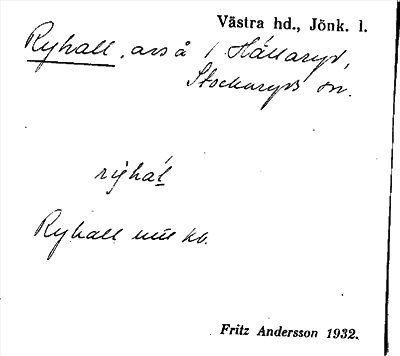 Västra hd., Jönk. l.
Ryhall, avs å / Hällaryd,
Stockaryds sn.
rỳhál
Ryhall
Fritz Andersson 1932.